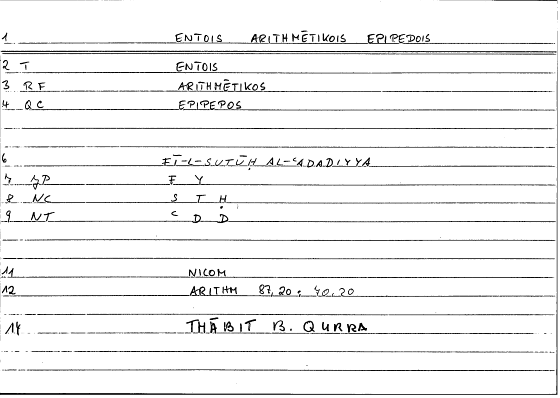 1 ENTOIS ARITHMĒTIKOIS EPIPEDOIS
2 T ENTOIS
3 RF ARITHMĒTIKOS
4 QC EPIPEPOS
6 FĪ-L-SUTŪḤ AL-ʿADADIYYA
7 F Y
8 NC S T Ḥ
9 NT ʿ D D
11 NICOM
12 ARITHM 87,20 : 40,20
14 THĀBIT B. QURRA